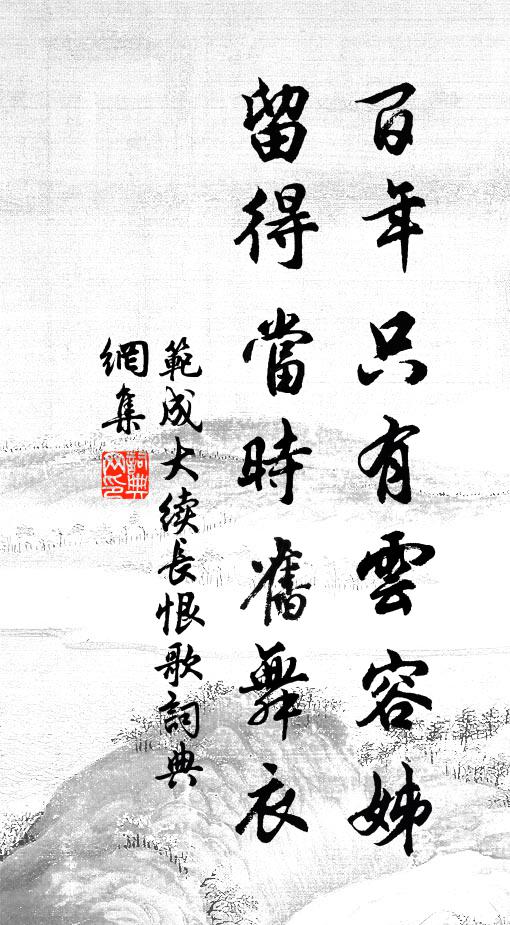 百年只有雲容姊
留得當時舊舞衣
範成大續長恨歌詞典
網集
詞典
网印